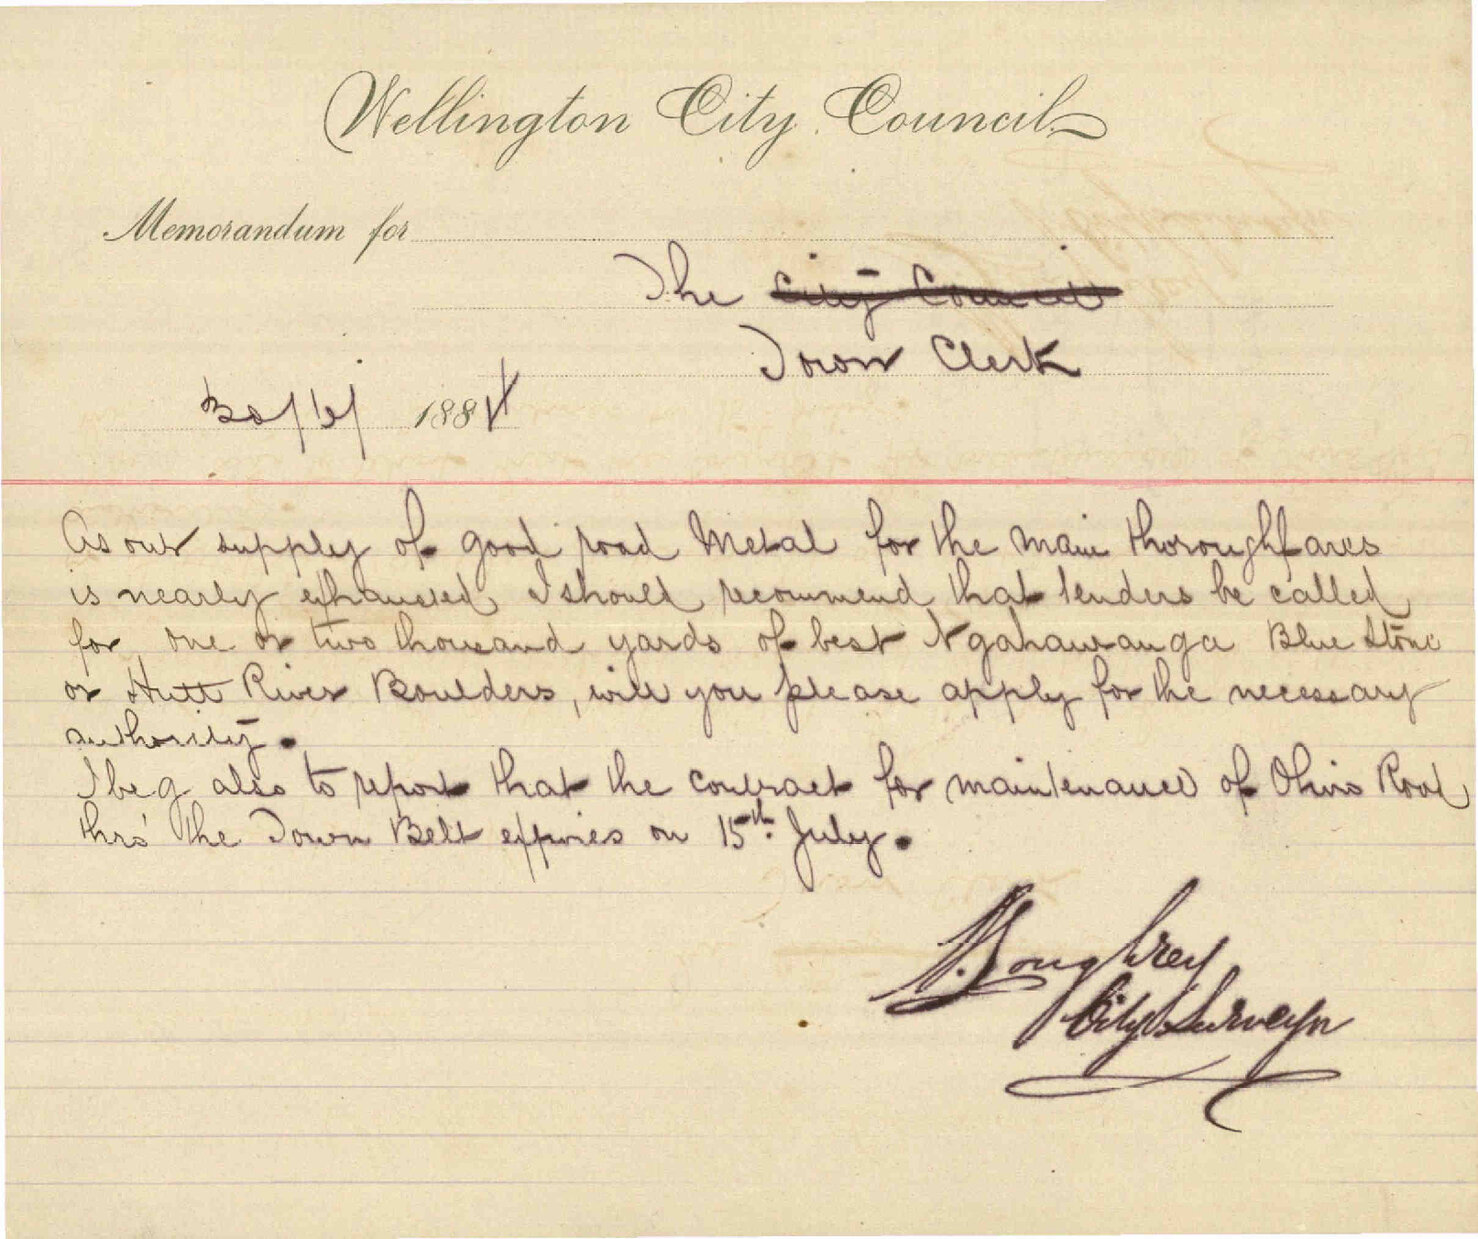 Wellington City Council
Memorandum for
The City Council
Town Clerk
30/6/ 1884
As our supply of good road Metal for the main thoroughfares
is nearly exhausted I should recommend that tenders be called
for one or two thousand yards of best Ngahauranga Blue Stone
or Hutt River Boulders, will you please apply for the necessary
authority.
I beg also to report that the contract for maintenance of Ohiro Road
thro' the Town Belt expires on 15th July.
Loughrey
City Surveyor